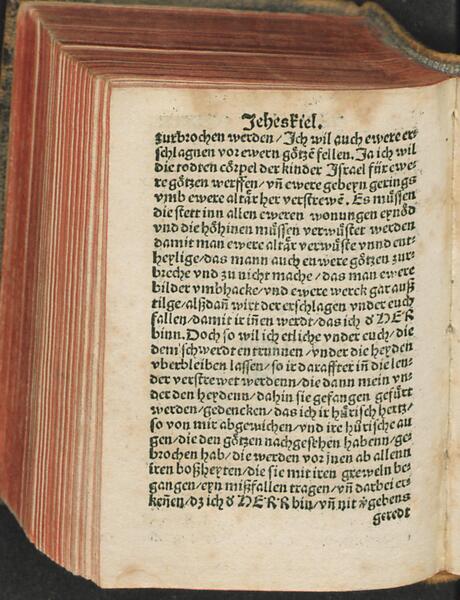 Jeheskiel.
zurbrochen werden / Jch wil auch ewere er-
schlagnen vor ewern götzē fellen. Ja ich wil
die todten cörpel der kinder Jsrael für ewe-
re götzen werffen / vn̄ ewere gebeyn gerings
vmb ewere altär her verstrewē. Es müssen
die stett inn allen eweren wonungen eynöd
vnd die höhinen müssen verwüstet werden
damit man ewere altär verwüste vnnd ent-
heylige / das mann auch enwere götzen zur-
breche vnd zu nicht mache / das man ewere
bilder vmbhacke / vnd ewere werck gar auß
tilge / alßdañ wirt der erschlagen vnder euch
fallen / damit ir iñen werdt / das ich d HER
binn. Doch so wil ich etliche vnder euch / die
dem schwerdt entrunnen / vnder die heyden
vberbleiben lassen / so ir daraffter iñ die len-
der verstrewet werdenn / die dann mein vn-
der den heydenn / dahin sie gefangen gefürt
werden / gedencken / das ich ir hürisch hertz /
so von mir abgewichen / vnd ire hürische au
gen / die den götzen nachgesehen habenn / ge-
brochen hab / die werden vor jnen ab allenn
iren boßheyten / die sie mit iren greweln be-
gangen / eyn mißfallen tragen / vn̄ darbei er-
keñen / dz ich d HERR bin / vn̄ nit vgebens
geredt